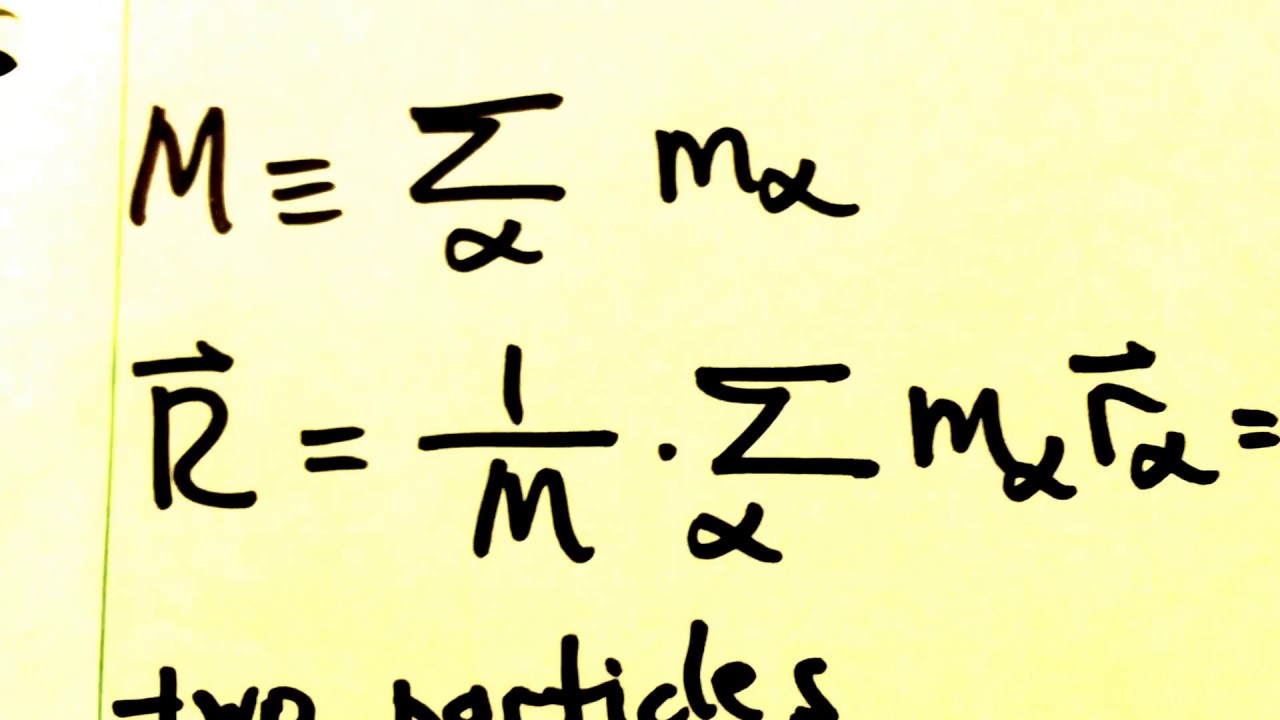 M ≡ Σ_α m_α
R⃗ = 1/M · Σ_α m_α r⃗_α =
two particles